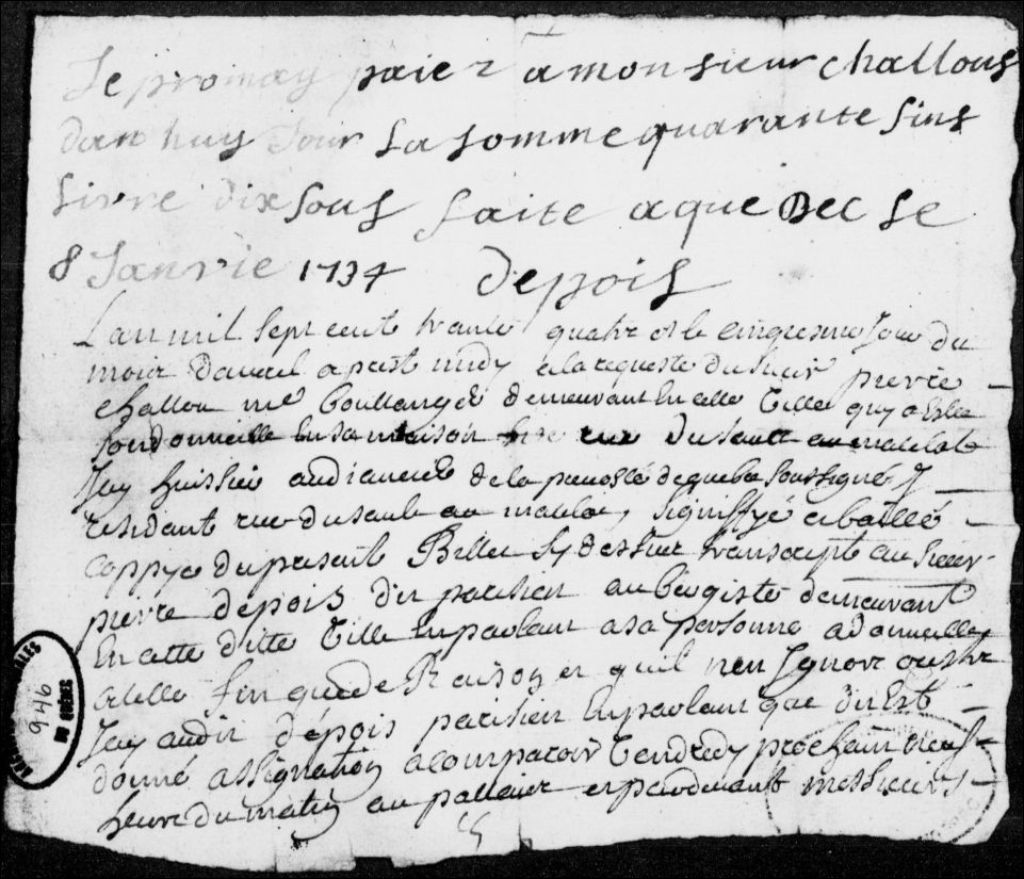 Je promay paier a monsieur challous
dan huy Jour La somme quarante sins
Livre dix sous faite a queBec Le
8 Janvié 1734 depois
Lan mil sept cent trante quatre et le cinquiesme Jour du
mois davril aprest midy a la requeste du sieur pierre
challou me boullangé demeurant En cette Ville quy a Eslu
son domicille En sa maison rue du sault au matelot
Jay huissié audiancié de la prevosté de quebec soussigné
residant rue du sault au matelot, signiffyé et baillé
coppye du present Billet sy dessus transcript au sieur
pierre depois dit parisien aubergiste demeurant
En cette ditte Ville En parlant a sa personne a domicille
a celle fin que de Raison et quil n'en Ignore outre
Jay audit dépois parisien En parlant que dit Est
donné assignation a comparoir Vendredy prochain neuf
heure du matin au pallais et pardevant messieurs
946